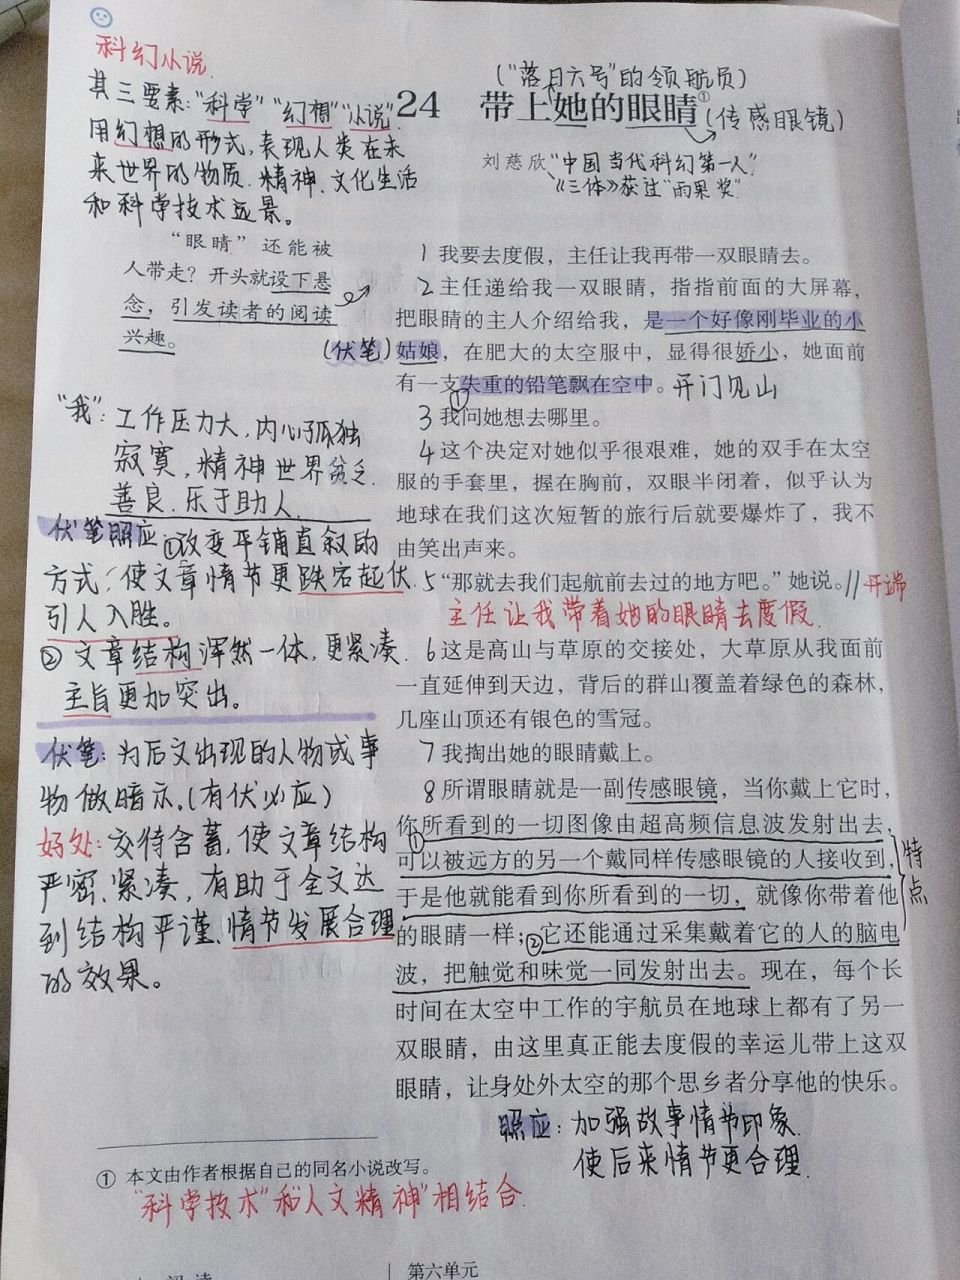 科幻小说
其三要素:"科学""幻想""小说"
用幻想的形式,表现人类在未
来世界的物质.精神、文化生活
和科学技术远景。
("落日六号"的领航员)
24 带上她的眼睛①
(传感眼镜)
刘慈欣"中国当代科幻第一人"
《三体》获过"雨果奖"
“眼睛”还能被
人带走?开头就设下悬
念,引发读者的阅读
兴趣。
(伏笔)
"我":工作压力大,内心孤独
寂寞,精神世界贫乏.
善良.乐于助人.
伏笔照应①改变平铺直叙的
方式,使文章情节更跌宕起伏
引人入胜。
②文章结构浑然一体,更紧凑.
主旨更加突出。
伏笔:为后文出现的人物或事
物做暗示.(有伏必应)
好处:交待含蓄,使文章结构
严密.紧凑,有助于全文达
到结构严谨、情节发展合理
的效果。
1我要去度假,主任让我再带一双眼睛去。
2主任递给我一双眼睛,指指前面的大屏幕,
把眼睛的主人介绍给我,是一个好像刚毕业的小
姑娘,在肥大的太空服中,显得很娇小,她面前
有一支失重的铅笔飘在空中。开门见山
①
3我问她想去哪里。
4这个决定对她似乎很艰难,她的双手在太空
服的手套里,握在胸前,双眼半闭着,似乎认为
地球在我们这次短暂的旅行后就要爆炸了,我不
由笑出声来。
5“那就去我们起航前去过的地方吧。”她说。//开端
主任让我带着她的眼睛去度假.
6这是高山与草原的交接处,大草原从我面前
一直延伸到天边,背后的群山覆盖着绿色的森林,
几座山顶还有银色的雪冠。
7我掏出她的眼睛戴上。
8所谓眼睛就是一副传感眼镜,当你戴上它时,
①你所看到的一切图像由超高频信息波发射出去,
可以被远方的另一个戴同样传感眼镜的人接收到,
于是他就能看到你所看到的一切,就像你带着他
的眼睛一样;②它还能通过采集戴着它的人的脑电
波,把触觉和味觉一同发射出去。现在,每个长
时间在太空中工作的宇航员在地球上都有了另一
双眼睛,由这里真正能去度假的幸运儿带上这双
眼睛,让身处外太空的那个思乡者分享他的快乐。
特点
照应:加强故事情节印象.
使后来情节更合理.
① 本文由作者根据自己的同名小说改写。
"科学技术"和"人文精神"相结合.
第六单元